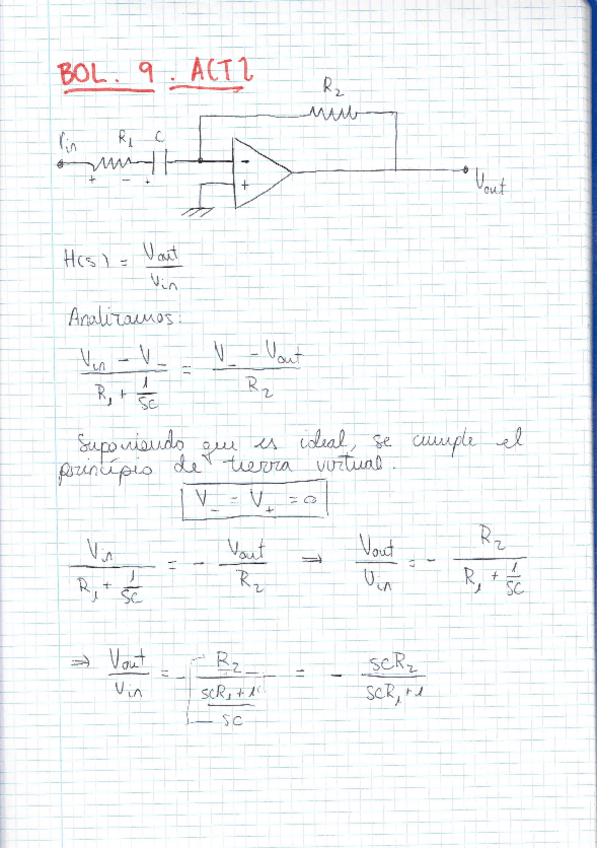 BOL. 9. ACT2
R₂
Vin R₁ C
+ - + -
+
Vout
H(s) = Vout / Vin
Analizamos:
(Vin - V₋) / (R₁ + 1/sC) = (V₋ - Vout) / R₂
Suponiendo que es ideal, se cumple el
principio de tierra virtual.
V₋ = V₊ = 0
Vin / (R₁ + 1/sC) = - Vout / R₂ ⇒ Vout / Vin = - R₂ / (R₁ + 1/sC)
⇒ Vout / Vin = - R₂ / ((sCR₁ + 1) / sC) = - sCR₂ / (sCR₁ + 1)